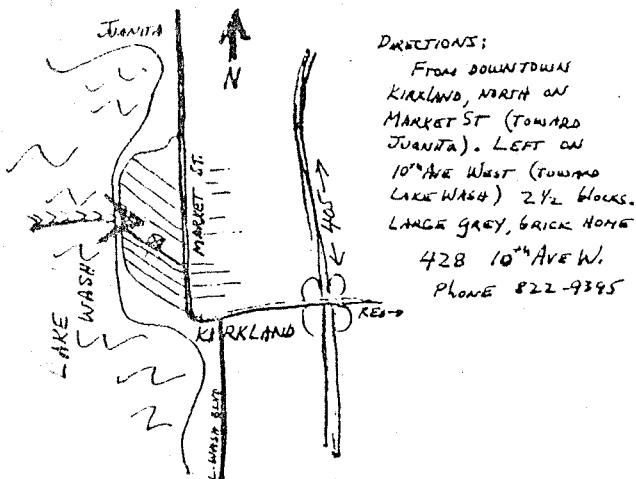 JUANITA
N
MARKET ST.
405
LAKE
WASH
KIRKLAND
RED→
L. WASH BLVD
DIRECTIONS:
FROM DOWNTOWN
KIRKLAND, NORTH ON
MARKET ST (TOWARD
JUANITA). LEFT ON
10th AVE WEST (TOWARD
LAKE WASH) 2½ blocks.
LARGE GREY, BRICK HOME
428 10th AVE W.
PHONE 822-9395